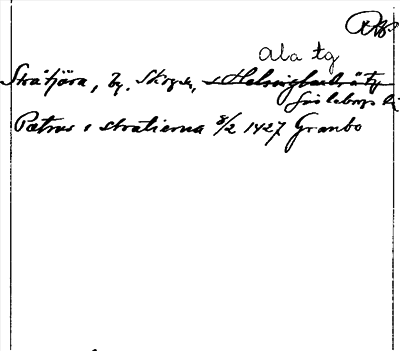 Ala tg
Stråtjära, by, Skogs sn, s Helsingland
Gävleborgs län
Petrus i stratierna 8/2 1427 Granbo